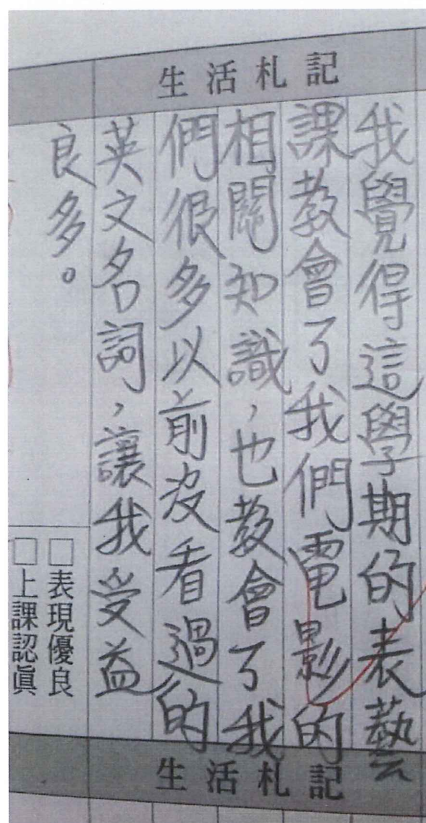 生活札記
我覺得這學期的表藝
課教會了我們電影的
相關知識，也教會了我
們很多以前沒看過的
英文名詞，讓我受益
良多。
□表現優良
□上課認真
生活札記